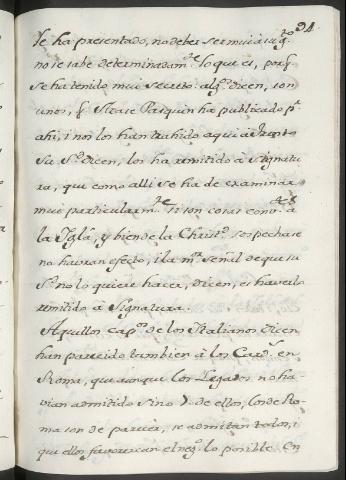 94
se ha presentado, no deber ser mui à su g.to
no se sabe determinadam.te lo que es, porq
se ha tenido mui secreto. alg.s dicen, son
unos, q Mase Pasquin ha publicado p.r
ahi, i nos los han trahido aqui
Su S.d dicen, los ha remitido à Signatu
ra, que como alli se ha de examinar
mui particularm.te si son cosas à
la Igl.a, y bien de la Christ.d sospechase
no havran efecto, i la m.r Señal de que su
S.d no lo quiere hacer, dicen, es haverlo
remitido à Signatura.
Aquellos cap.s de los Italianos dicen
han parecido tambien à los Card.s en
Roma, que aunque los Legados no ha
vian admitido sino de ellos, los de Ro
ma son de parecer, se admitan todos, i
que ellos favorezcan el neg.o lo posible. En